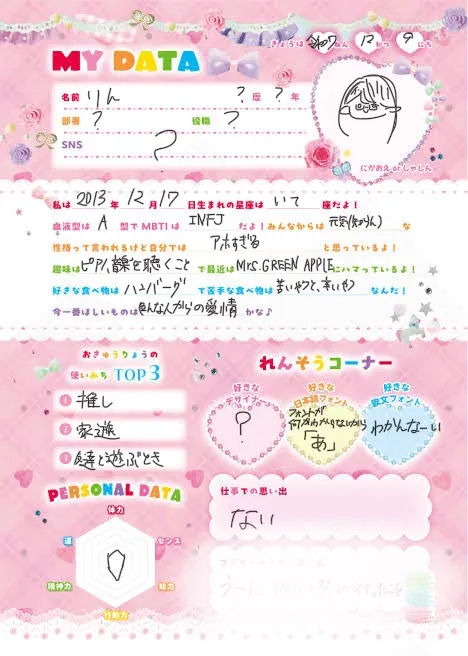 きょうは れいわ7ねん 12がつ 9にち
MY DATA
名前 りん ?歴 ?年
部署 ? 役職 ?
SNS ?
にがおえ or しゃしん
私は 2013年 12月 17日生まれの星座は いて 座だよ!
血液型は A 型でMBTIは INFJ だよ!みんなからは 元気(知らん) な
性格って言われるけど自分では アホすぎる と思っているよ!
趣味は ピアノ、音楽を聴くこと で最近は Mrs.GREEN APPLE にハマっているよ!
好きな食べ物は ハンバーグ で苦手な食べ物は 苦いやつと、辛いやつ なんだ!
今一番ほしいものは 色んな人からの愛情 かな♪
おきゅうりょうの
使いみち TOP3
1 推し
2 家族
3 友達と遊ぶとき
れんそうコーナー
好きな
デザイナー
?
好きな
日本語フォント
フォントが
何かわかりないから
「あ」
好きな
欧文フォント
わかんなーい
PERSONAL DATA
体力
センス
知力
行動力
精神力
運
仕事での思い出
ない
プライベートでの思い出
うーん